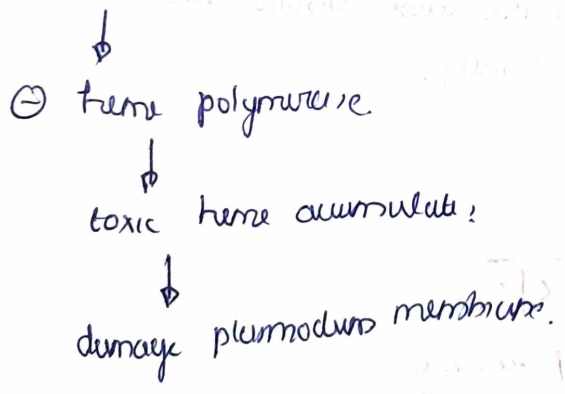 ↓
⊖ heme polymerase
↓
toxic heme accumulate;
↓
damage plasmodium membrane.